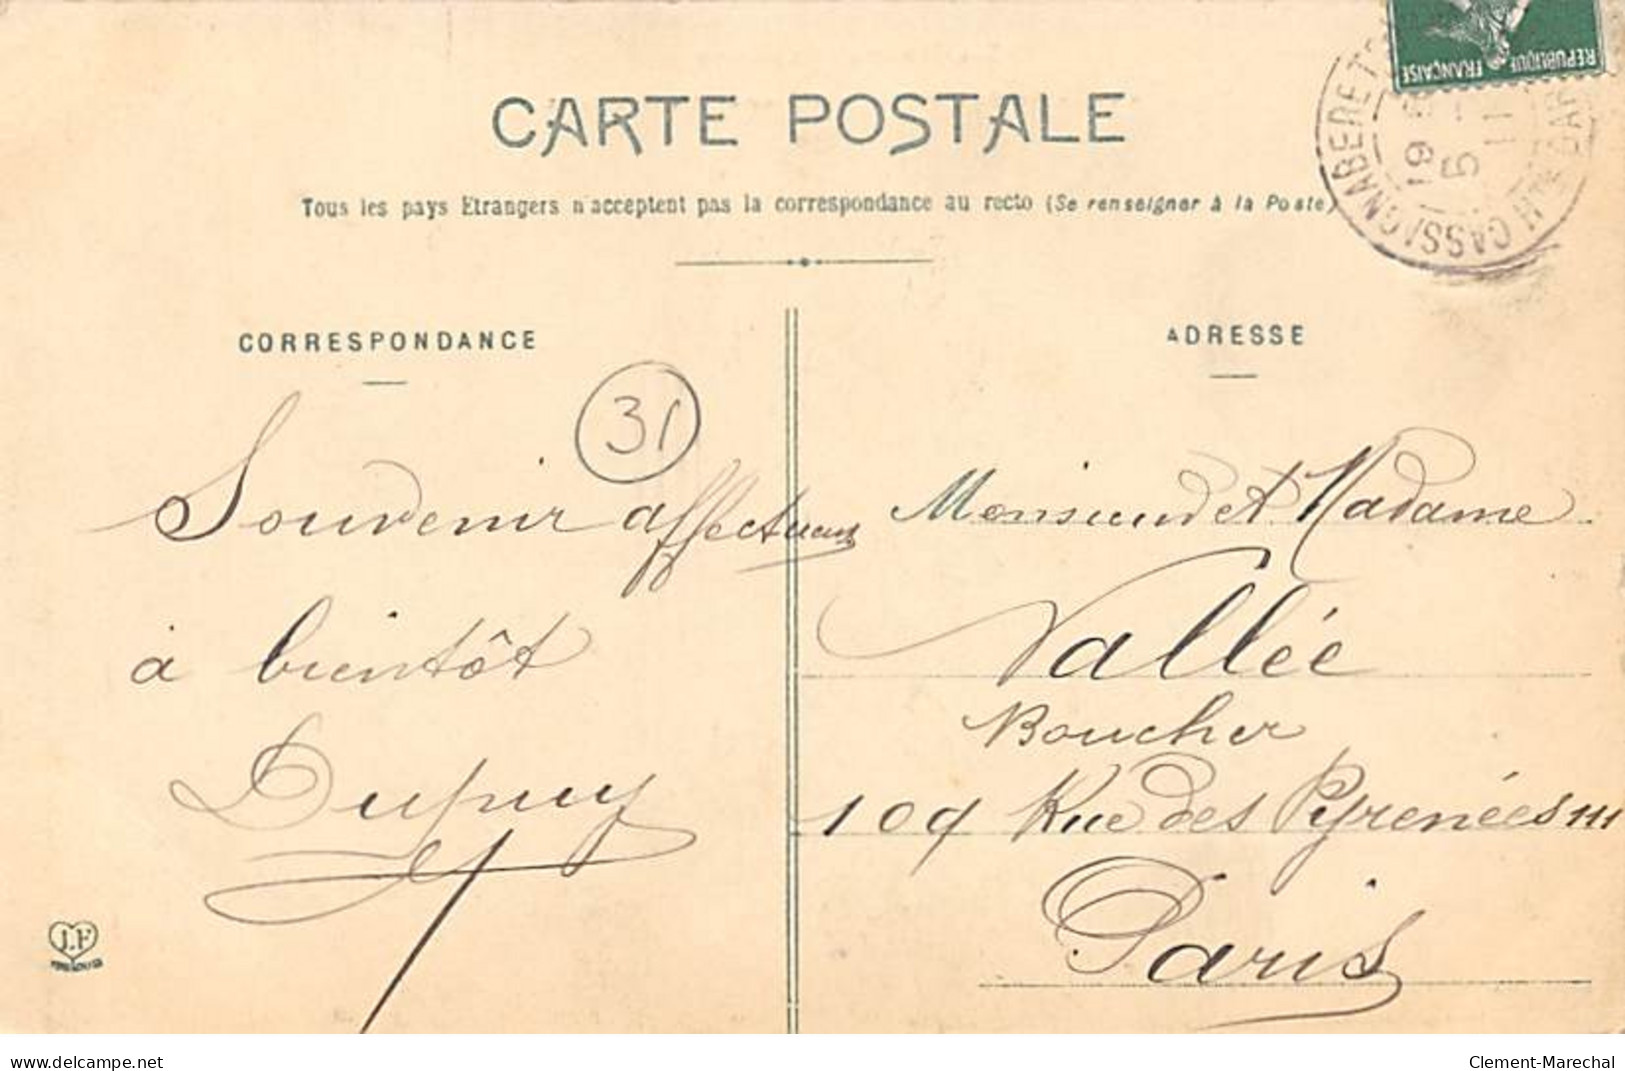 CARTE POSTALE
Tous les pays Etrangers n'acceptent pas la correspondance au recto (Se renseigner à la Poste)
REPUBLIQUE FRANÇAISE
CASSAGNABERE Hte GAR
19
5
11
CORRESPONDANCE
31
Souvenir affectueux
à bientôt
Dupuy
ADRESSE
Monsieur et Madame
Vallée
Boucher
109 Rue des Pyrenées
Paris
delcampe.net
Clement-Marechal